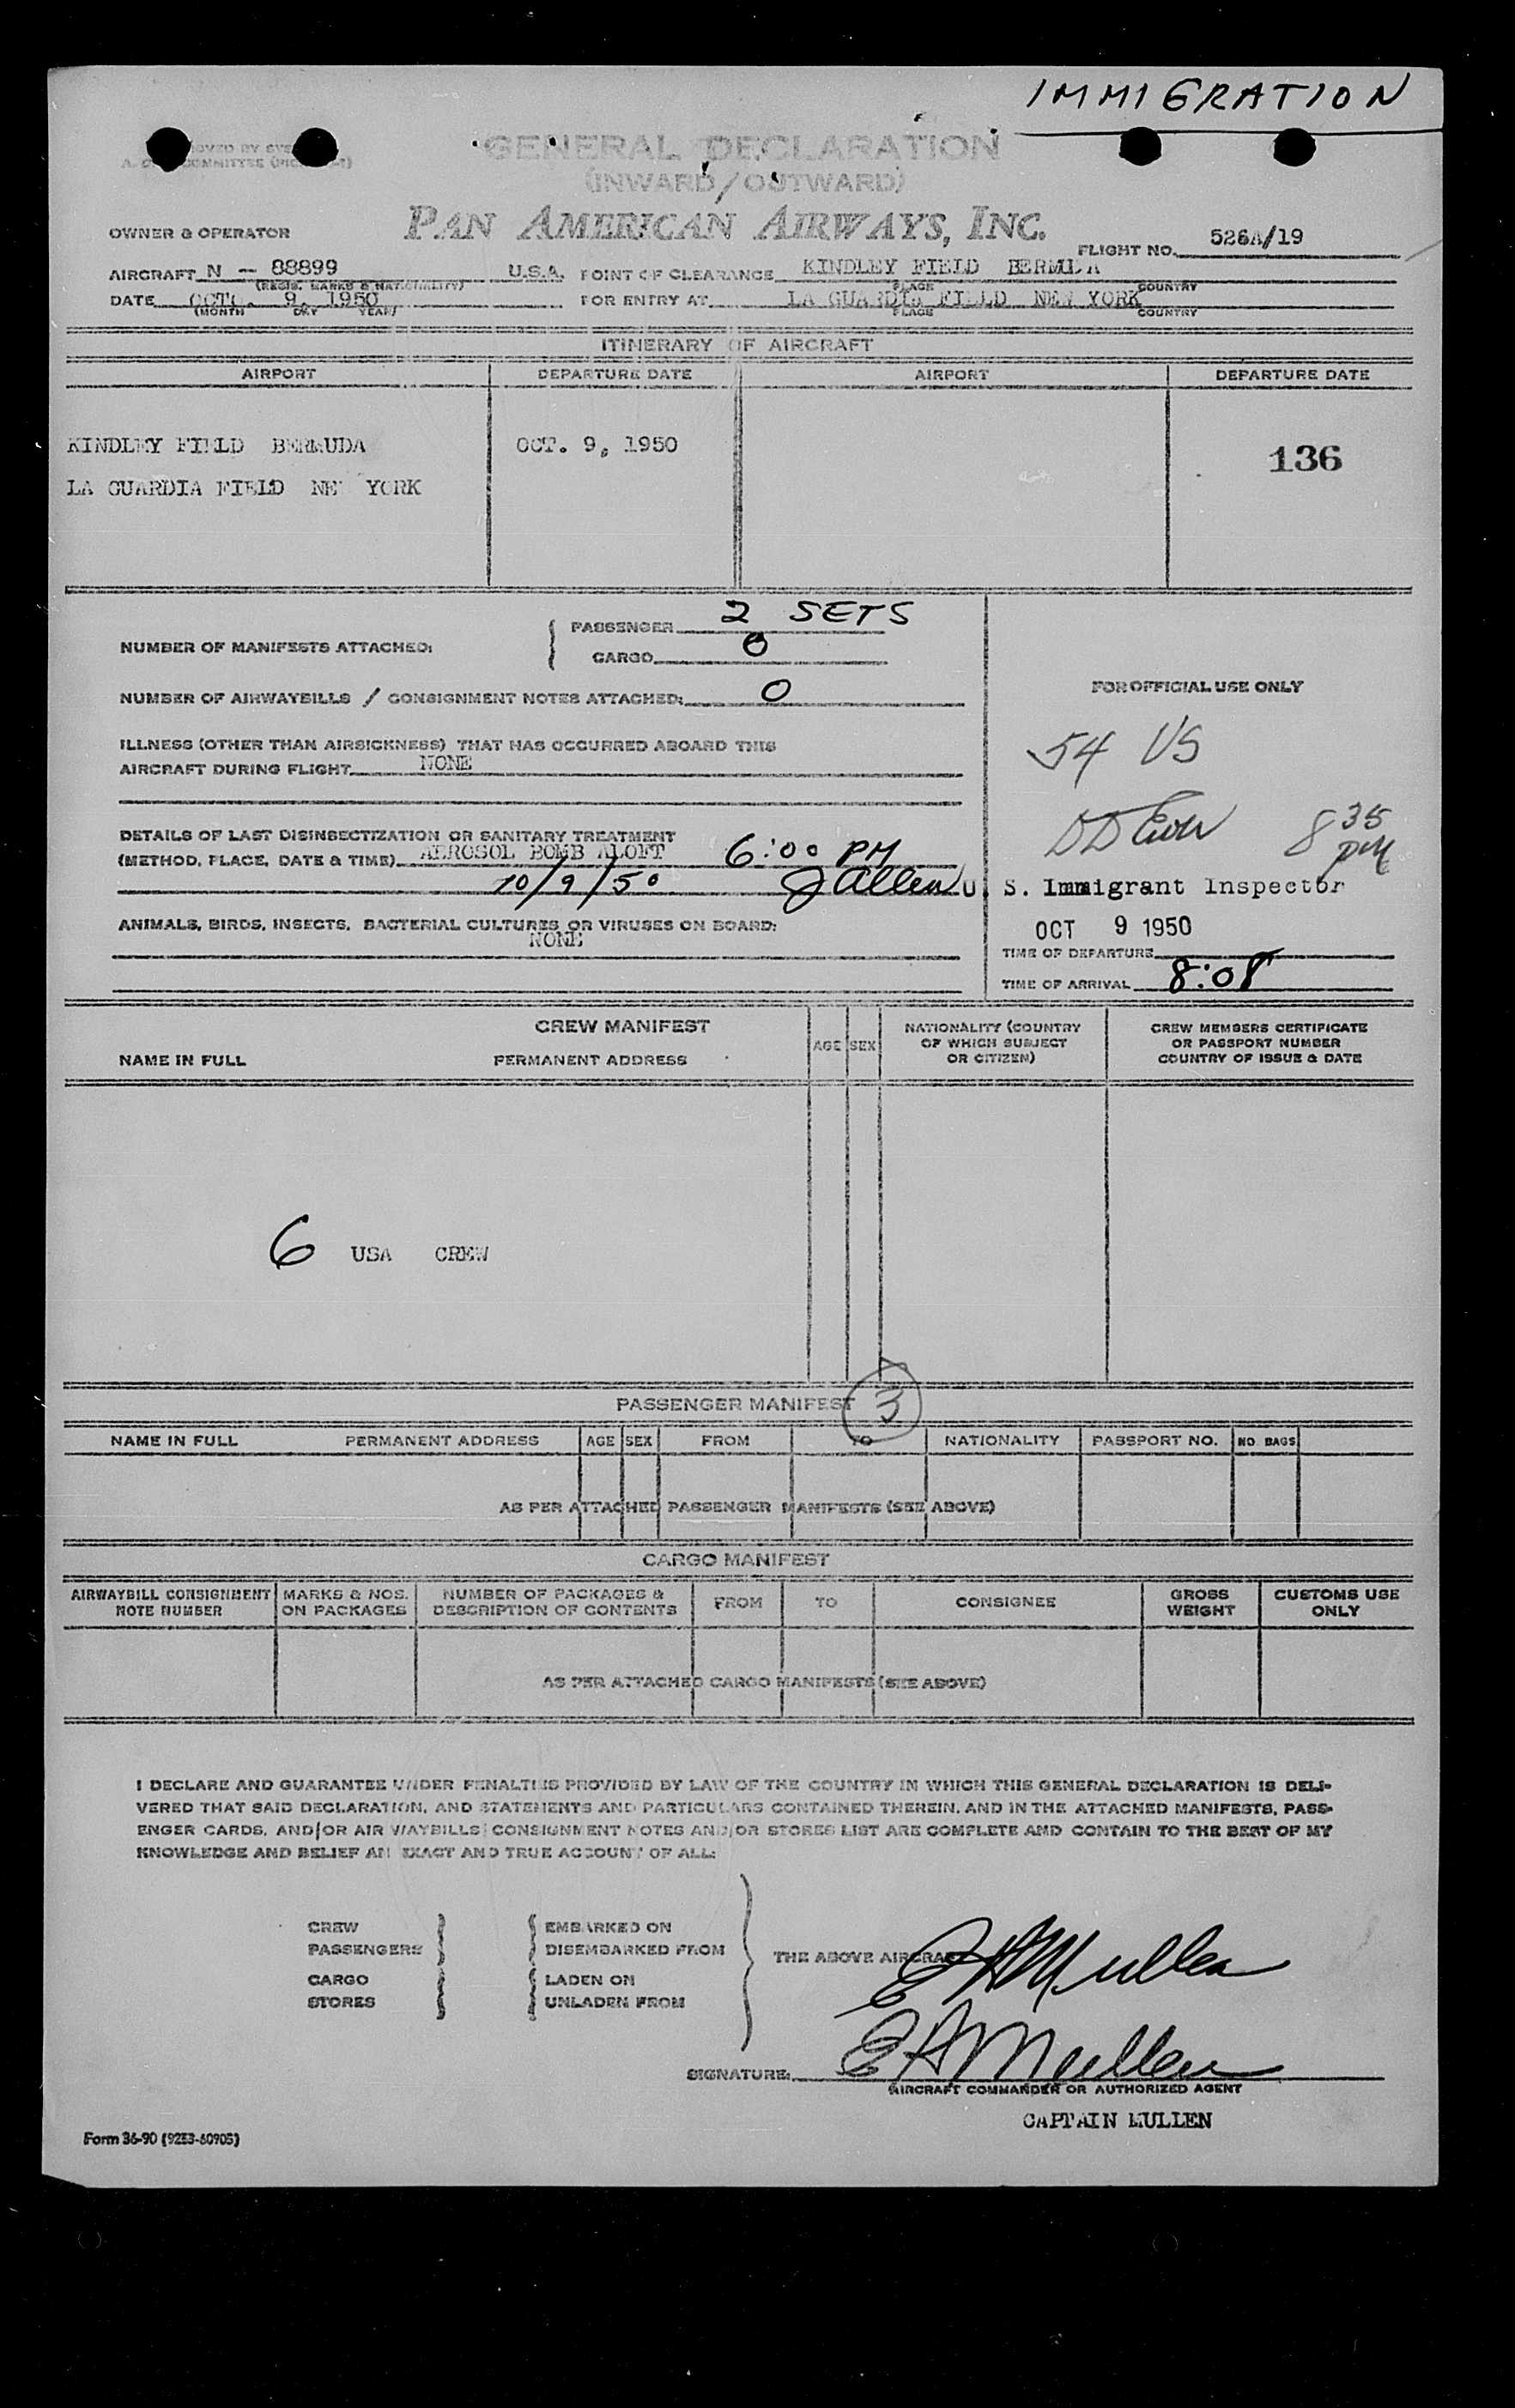 IMMIGRATION
GENERAL DECLARATION
(INWARD/OUTWARD)
PAN AMERICAN AIRWAYS, INC.
OWNER & OPERATOR
FLIGHT NO. 526A/19
AIRCRAFT N - 88899 U.S.A. POINT OF CLEARANCE KINDLEY FIELD BERMUDA
(REGIS. MARKS & NATIONALITY) PLACE COUNTRY
DATE OCTO. 9, 1950 FOR ENTRY AT LA GUARDIA FIELD NEW YORK
(MONTH DAY YEAR) PLACE COUNTRY
ITINERARY OF AIRCRAFT
AIRPORT DEPARTURE DATE AIRPORT DEPARTURE DATE
KINDLEY FIELD BERMUDA OCT. 9, 1950
136
LA GUARDIA FIELD NE YORK
NUMBER OF MANIFESTS ATTACHED: PASSENGER 2 SETS
CARGO 0
NUMBER OF AIRWAYBILLS / CONSIGNMENT NOTES ATTACHED: 0
FOR OFFICIAL USE ONLY
ILLNESS (OTHER THAN AIRSICKNESS) THAT HAS OCCURRED ABOARD THIS
AIRCRAFT DURING FLIGHT NONE
54 US
DETAILS OF LAST DISINSECTIZATION OR SANITARY TREATMENT
(METHOD, PLACE, DATE & TIME) AEROSOL BOMB ALOFT 6:00 PM
10/9/50 J Allen
8 35 PM
U. S. Immigrant Inspector
OCT 9 1950
ANIMALS, BIRDS, INSECTS, BACTERIAL CULTURES OR VIRUSES ON BOARD:
NONE
TIME OF DEPARTURE
TIME OF ARRIVAL 8:08
CREW MANIFEST
NAME IN FULL PERMANENT ADDRESS AGE SEX
NATIONALITY (COUNTRY
OF WHICH SUBJECT
OR CITIZEN)
CREW MEMBERS CERTIFICATE
OR PASSPORT NUMBER
COUNTRY OF ISSUE & DATE
6 USA CREW
PASSENGER MANIFEST 3
NAME IN FULL PERMANENT ADDRESS AGE SEX FROM TO NATIONALITY PASSPORT NO. NO. BAGS
AS PER ATTACHED PASSENGER MANIFESTS (SEE ABOVE)
CARGO MANIFEST
AIRWAYBILL CONSIGNMENT
NOTE NUMBER
MARKS & NOS.
ON PACKAGES
NUMBER OF PACKAGES &
DESCRIPTION OF CONTENTS
FROM TO CONSIGNEE
GROSS
WEIGHT
CUSTOMS USE
ONLY
AS PER ATTACHED CARGO MANIFESTS (SEE ABOVE)
I DECLARE AND GUARANTEE UNDER PENALTIES PROVIDED BY LAW OF THE COUNTRY IN WHICH THIS GENERAL DECLARATION IS DELI-
VERED THAT SAID DECLARATION, AND STATEMENTS AND PARTICULARS CONTAINED THEREIN, AND IN THE ATTACHED MANIFESTS, PASS-
ENGER CARDS, AND/OR AIR WAYBILLS/CONSIGNMENT NOTES AND/OR STORES LIST ARE COMPLETE AND CONTAIN TO THE BEST OF MY
KNOWLEDGE AND BELIEF AN EXACT AND TRUE ACCOUNT OF ALL:
CREW EMBARKED ON
PASSENGERS DISEMBARKED FROM
THE ABOVE AIRCRAFT
CARGO LADEN ON
STORES UNLADEN FROM
E A Mullen
SIGNATURE: E A Mullen
AIRCRAFT COMMANDER OR AUTHORIZED AGENT
CAPTAIN MULLEN
Form 36-90 (9253-60905)